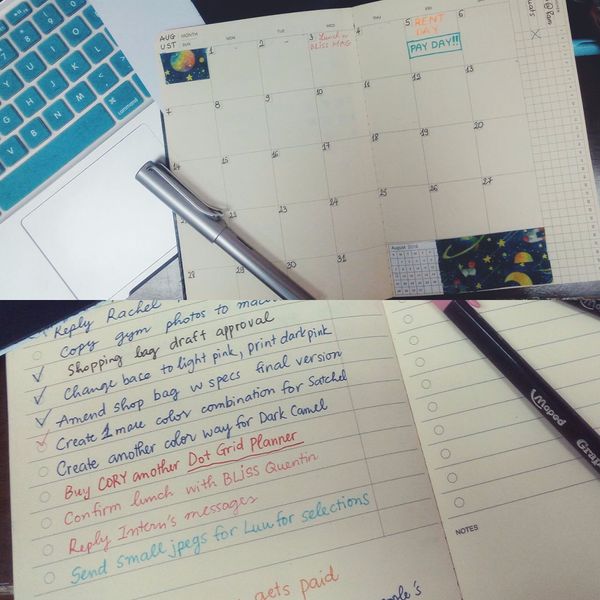 AUGUST
MONTH
SUN
MON
TUE
WED
THU
FRI
SAT
1
2
3 Lunch w
BLiSS MAG
4
5 RENT
DAY
PAY DAY!!
6
7
8
9
10
11
12
13
14
15
16
17
18
19
20
21
22
23
24
25
26
27
28
29
30
31
August 2016
command
Reply Rachel
Copy gym photos to
Shopping bag draft approval
Change base to light pink, print dark pink
Amend Shop bag w specs final version
Create 1 more color combination for Satchel
Create another color way for Dark Camel
Buy CORY another Dot Grid Planner
Confirm lunch with BLiss Quentin
Reply Intern's messages
Send small jpegs for Luu for selections
gets paid
Maped
Grap
NOTES